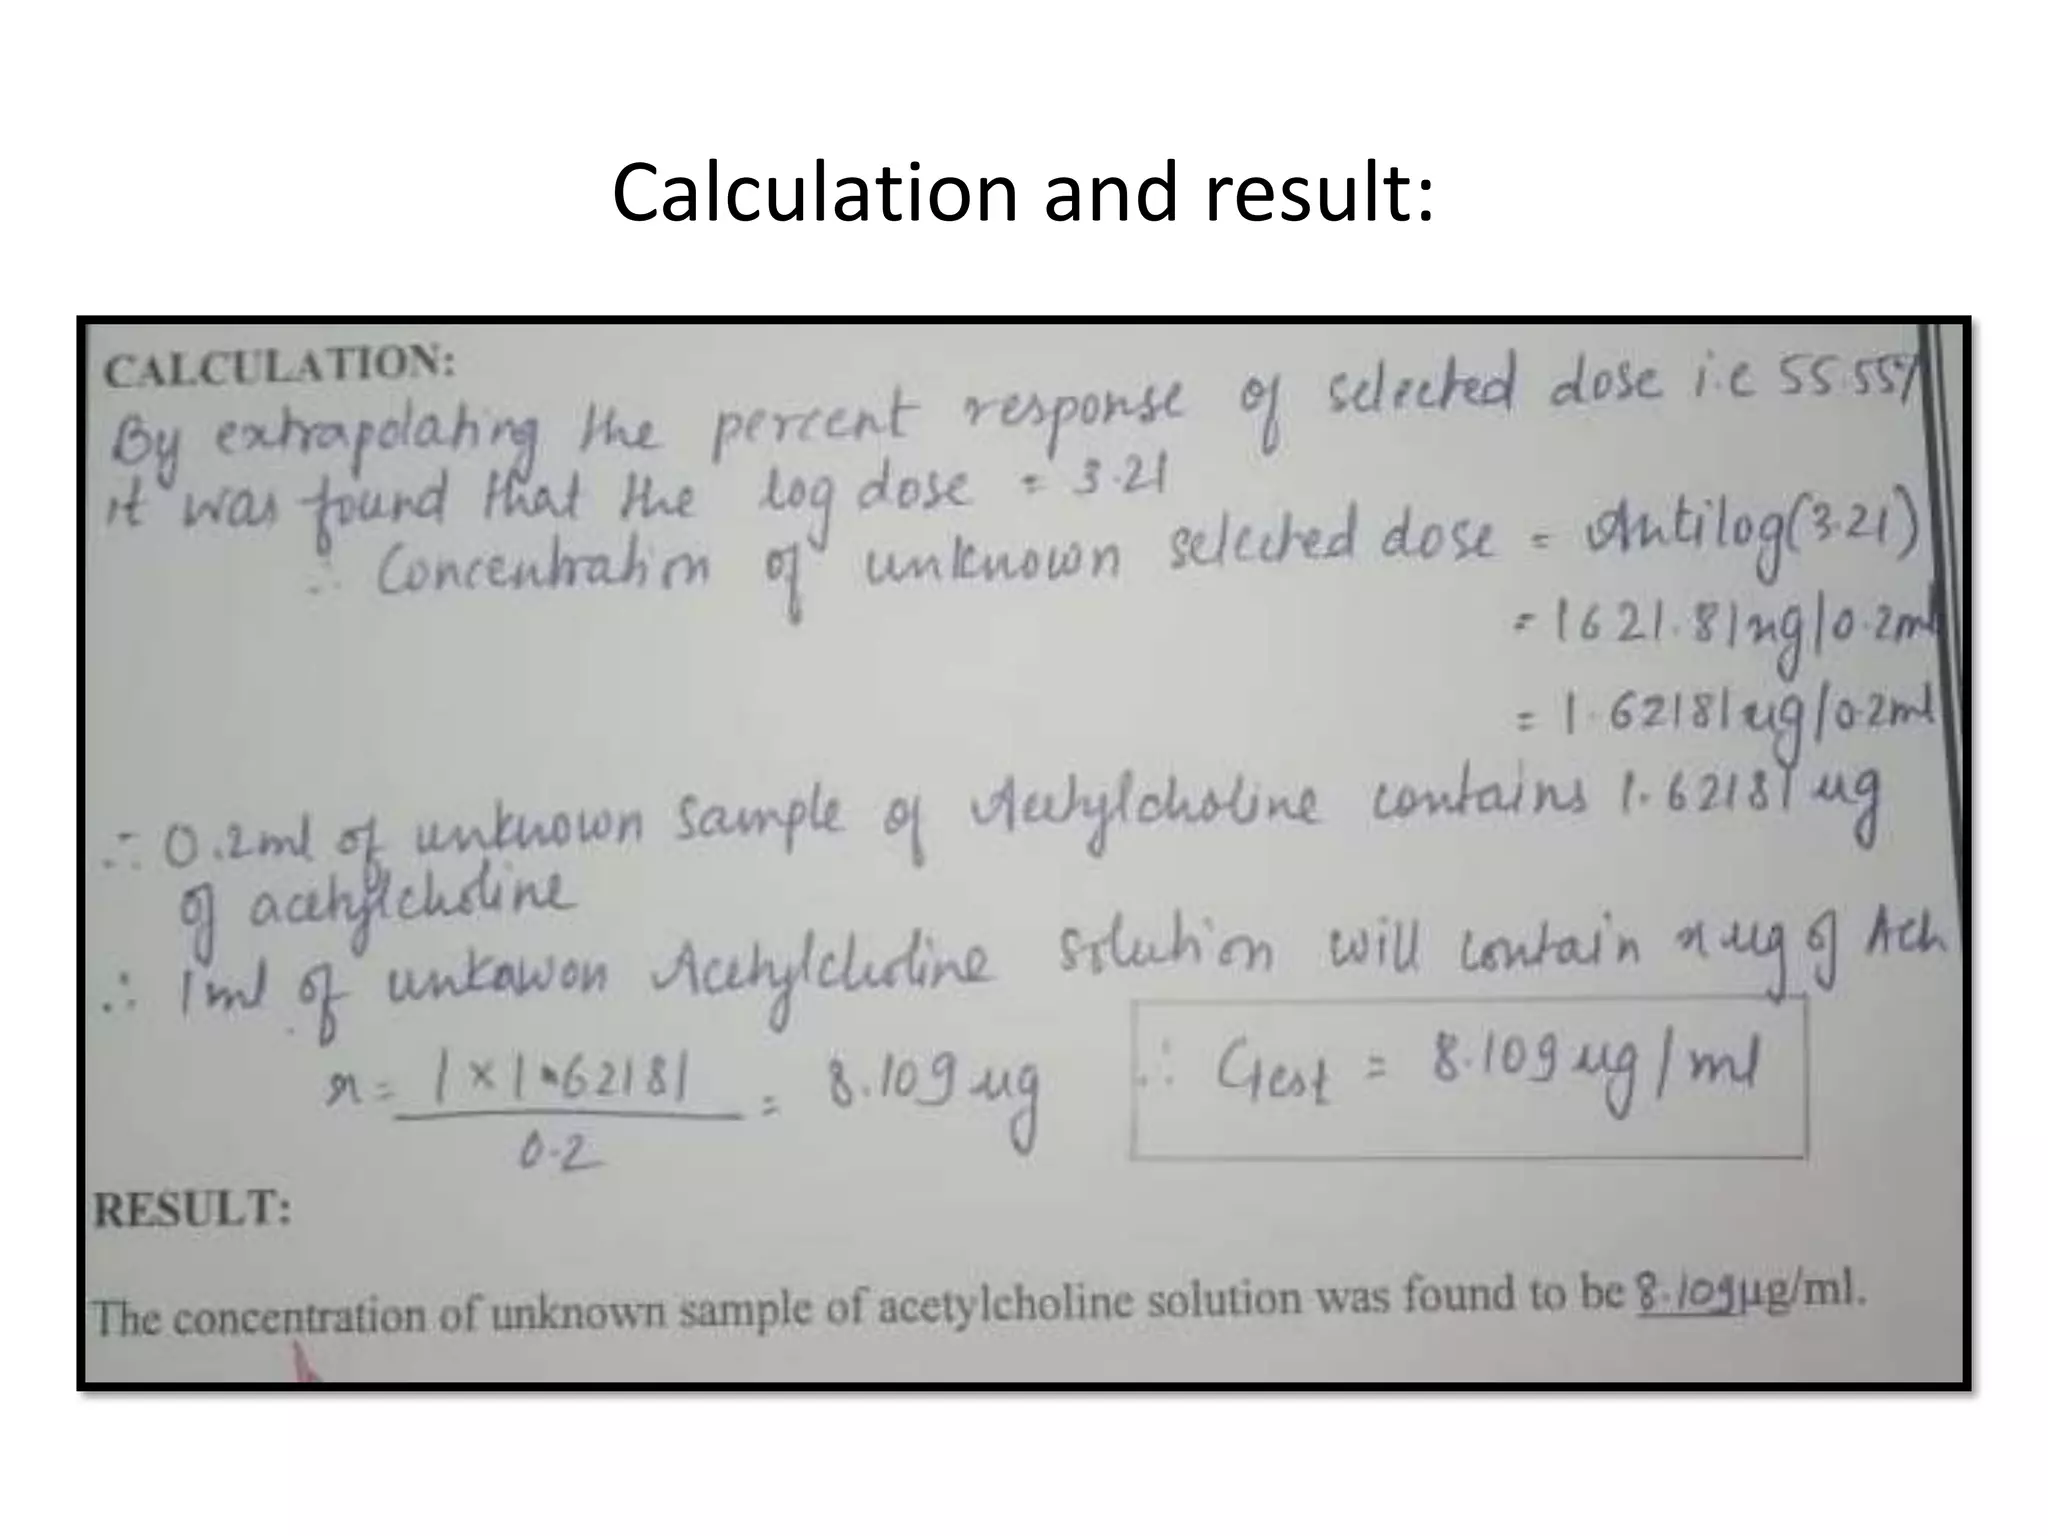 Calculation and result:
CALCULATION:
By extrapolating the percent response of selected dose i.e 55.55%
it was found that the log dose = 3.21
∴ Concentration of unknown selected dose = Antilog(3.21)
= 1621.81ng/0.2ml
= 1.62181ug/0.2ml
∴ 0.2ml of unknown sample of Acetylcholine contains 1.62181 ug
of acetylcholine
∴ 1ml of unkowon Acetylcholine solution will contain x ug of Ach
x = 1 x 1.62181 = 8.109 ug
0.2
∴ CTest = 8.109 ug/ml
RESULT:
The concentration of unknown sample of acetylcholine solution was found to be 8.109µg/ml.